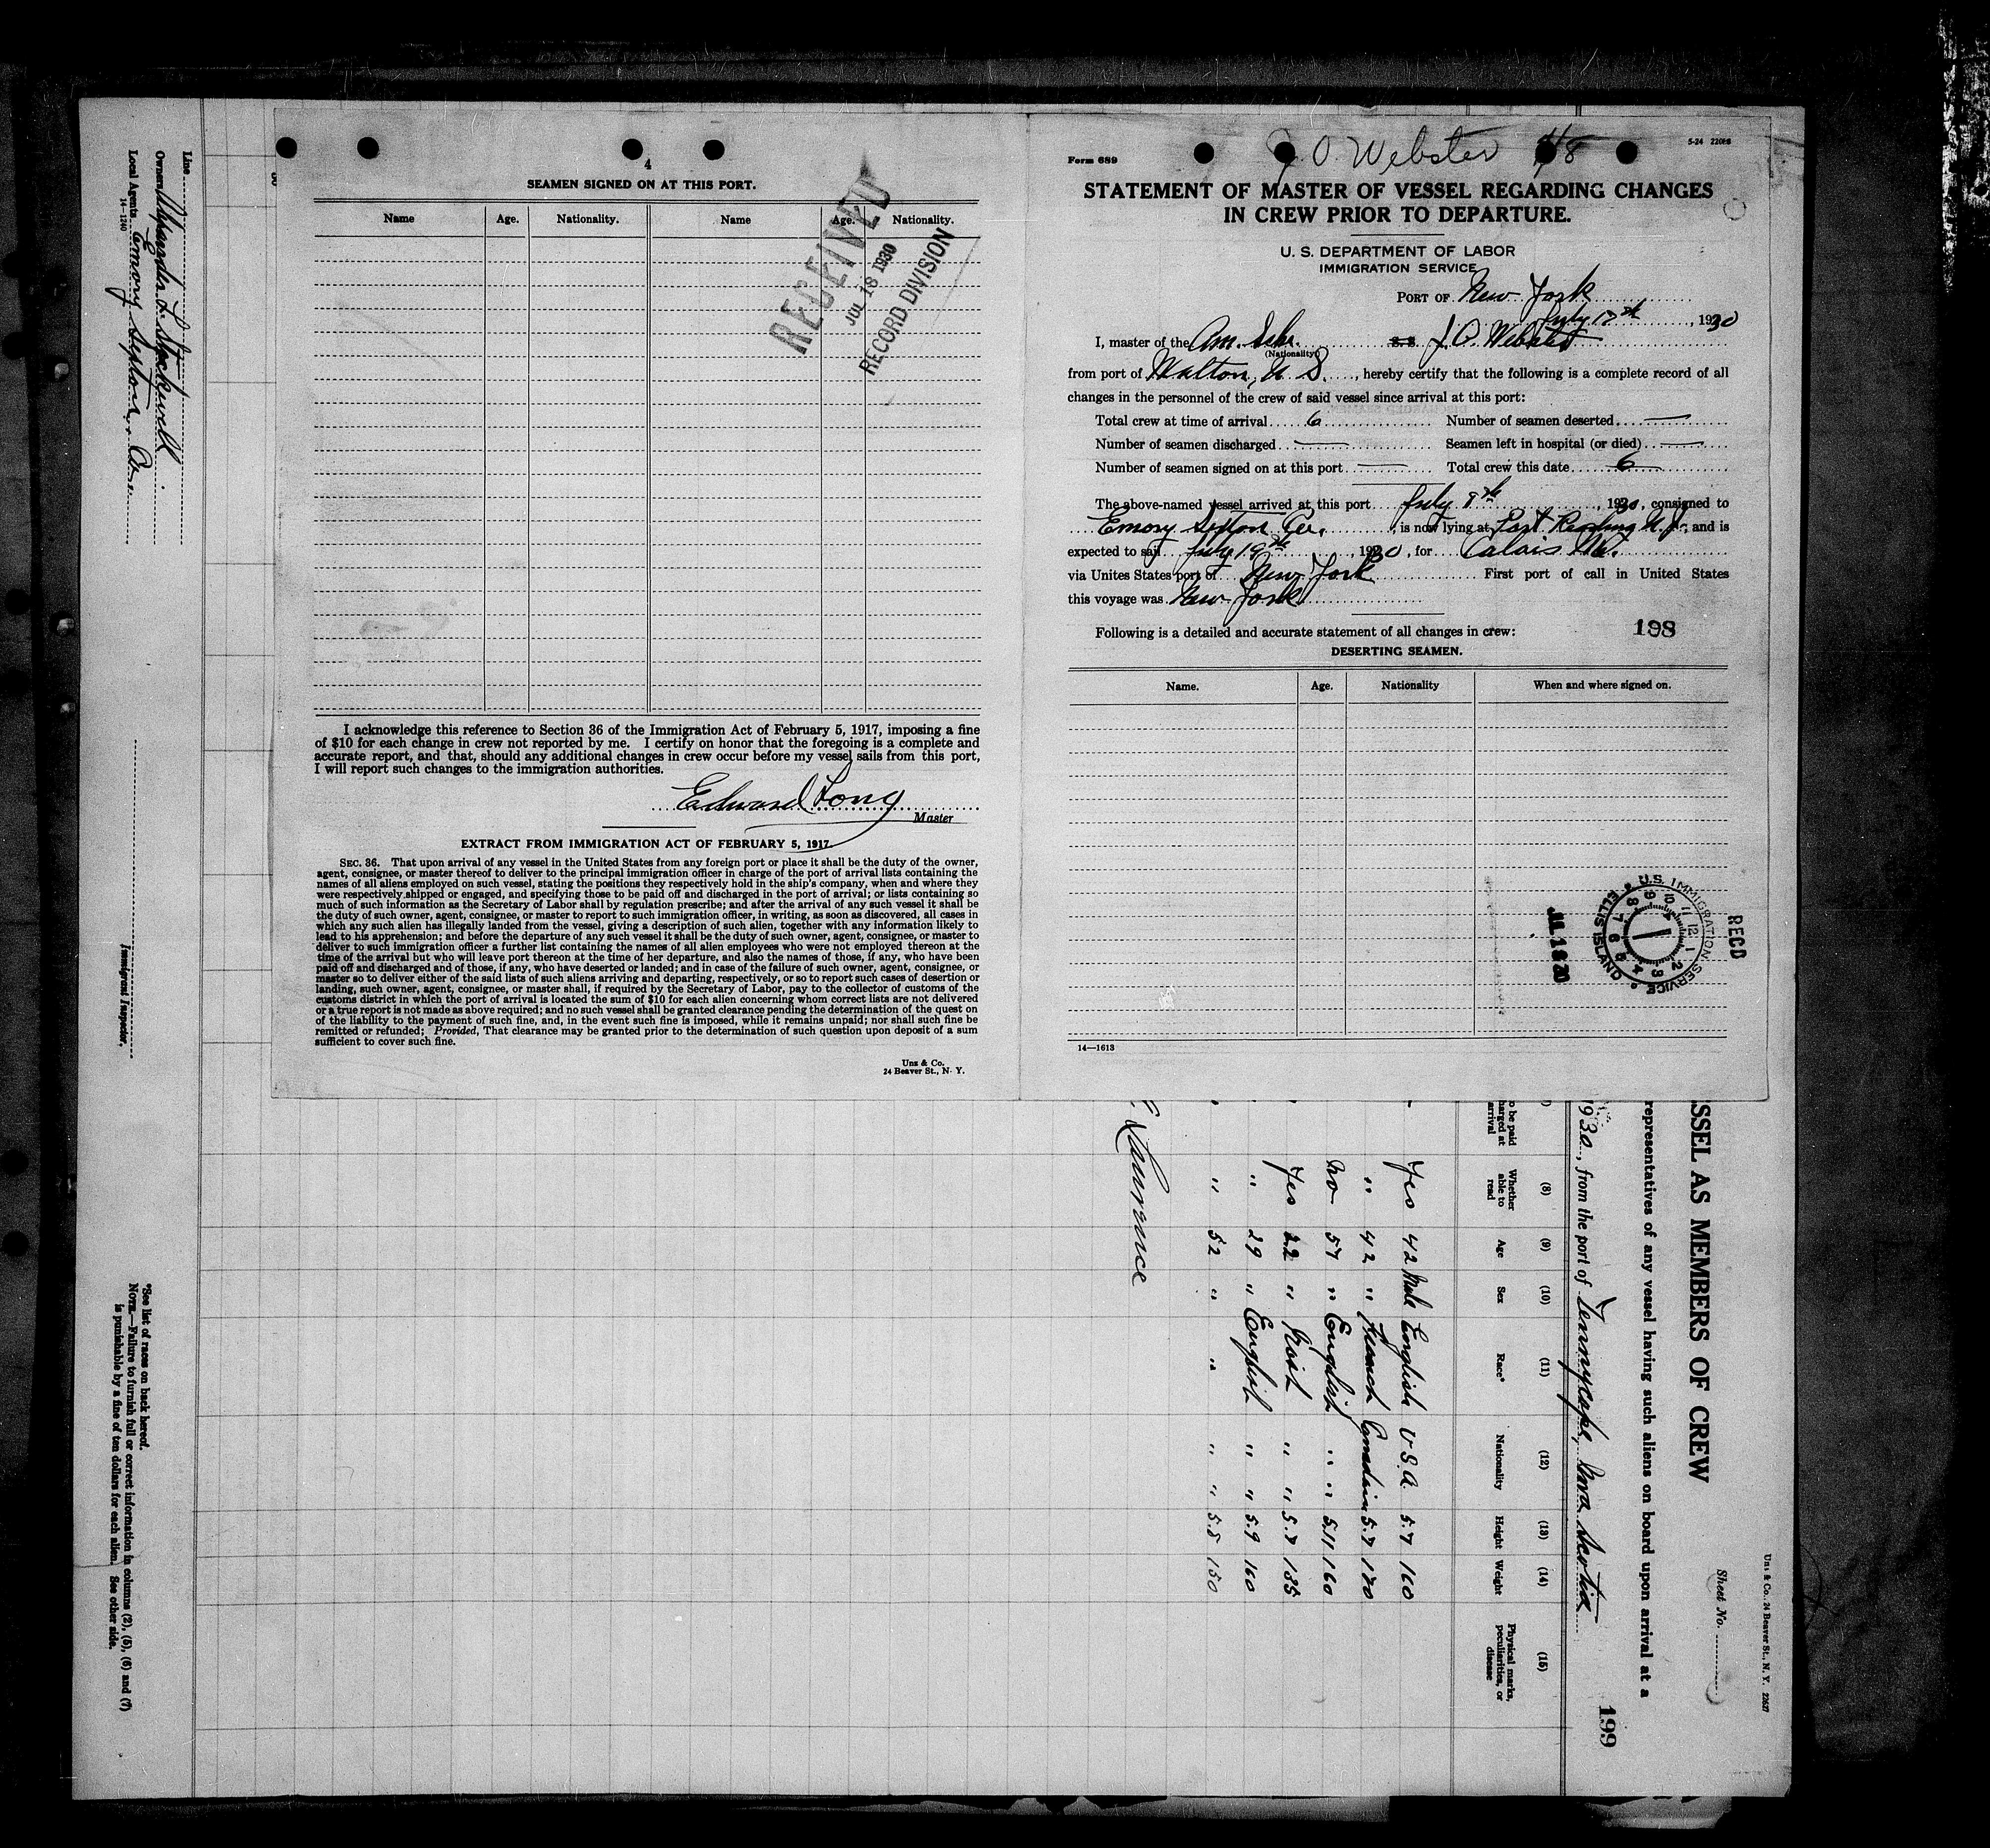 4
SEAMEN SIGNED ON AT THIS PORT.
Name Age. Nationality. Name Age. Nationality.
RECEIVED
JUL 18 1930
RECORD DIVISION
I acknowledge this reference to Section 36 of the Immigration Act of February 5, 1917, imposing a fine
of $10 for each change in crew not reported by me. I certify on honor that the foregoing is a complete and
accurate report, and that, should any additional changes in crew occur before my vessel sails from this port,
I will report such changes to the immigration authorities.
Edward Long
Master
EXTRACT FROM IMMIGRATION ACT OF FEBRUARY 5, 1917.
SEC. 36. That upon arrival of any vessel in the United States from any foreign port or place it shall be the duty of the owner,
agent, consignee, or master thereof to deliver to the principal immigration officer in charge of the port of arrival lists containing the
names of all aliens employed on such vessel, stating the positions they respectively hold in the ship's company, when and where they
were respectively shipped or engaged, and specifying those to be paid off and discharged in the port of arrival; or lists containing so
much of such information as the Secretary of Labor shall by regulation prescribe; and after the arrival of any such vessel it shall be
the duty of such owner, agent, consignee, or master to report to such immigration officer, in writing, as soon as discovered, all cases in
which any such alien has illegally landed from the vessel, giving a description of such alien, together with any information likely to
lead to his apprehension; and before the departure of any such vessel it shall be the duty of such owner, agent, consignee, or master to
deliver to such immigration officer a further list containing the names of all alien employees who were not employed thereon at the
time of the arrival but who will leave port thereon at the time of her departure, and also the names of those, if any, who have been
paid off and discharged and of those, if any, who have deserted or landed; and in case of the failure of such owner, agent, consignee, or
master so to deliver either of the said lists of such aliens arriving and departing, respectively, or so to report such cases of desertion or
landing, such owner, agent, consignee, or master shall, if required by the Secretary of Labor, pay to the collector of customs of the
customs district in which the port of arrival is located the sum of $10 for each alien concerning whom correct lists are not delivered
or a true report is not made as above required; and no such vessel shall be granted clearance pending the determination of the quest on
of the liability to the payment of such fine, and, in the event such fine is imposed, while it remains unpaid; nor shall such fine be
remitted or refunded; Provided, That clearance may be granted prior to the determination of such question upon deposit of a sum
sufficient to cover such fine.
Unz & Co.
24 Beaver St., N. Y.
Form 689
J. O. Webster 4/8
5-24
STATEMENT OF MASTER OF VESSEL REGARDING CHANGES
IN CREW PRIOR TO DEPARTURE.
U. S. DEPARTMENT OF LABOR
IMMIGRATION SERVICE
PORT OF New York
July 17th, 1930
I, master of the Am. Schr. S.S. J. O. Webster
(Nationality)
from port of Walton, N. S., hereby certify that the following is a complete record of all
changes in the personnel of the crew of said vessel since arrival at this port:
Total crew at time of arrival 6 Number of seamen deserted —
Number of seamen discharged — Seamen left in hospital (or died) —
Number of seamen signed on at this port — Total crew this date 6
The above-named vessel arrived at this port July 8th, 1930, consigned to
Emory Sexton Co., is now lying at Port Reading N. J., and is
expected to sail July 19th, 1930, for Calais Me.
via Unites States port of New York First port of call in United States
this voyage was New York
Following is a detailed and accurate statement of all changes in crew: 198
DESERTING SEAMEN.
Name. Age. Nationality When and where signed on.
RECD
U.S. IMMIGRATION SERVICE
ELLIS ISLAND
14—1613
Line
Owners Alexander L. Stockwell
Local Agents Emory Sexton Co.
14-1240
Immigrant Inspector.
*See list of races on back hereof.
NOTE.—Failure to furnish full or correct information in columns (2), (5), (6) and (7)
is punishable by a fine of ten dollars for each alien. See other side.
Unz & Co. 24 Beaver St., N. Y.
Sheet No.
SSEL AS MEMBERS OF CREW
representatives of any vessel having such aliens on board upon arrival at a
1930, from the port of Tennycape, Nova Scotia 199
(8) (9) (10) (11) (12) (13) (14) (15)
o be paid harged at arrival Whether able to read Age Sex Race* Nationality Height Weight Physical marks, peculiarities, or disease
Yes 42 Male English U.S.A. 5.7 160
" 42 " French Canadian 5.7 170
No 57 " English " " 5.11 160
Yes 22 " Irish " " 5.7 135
" 29 " English " " 5.9 160
" 52 " " " " 5.8 150
Lawrence